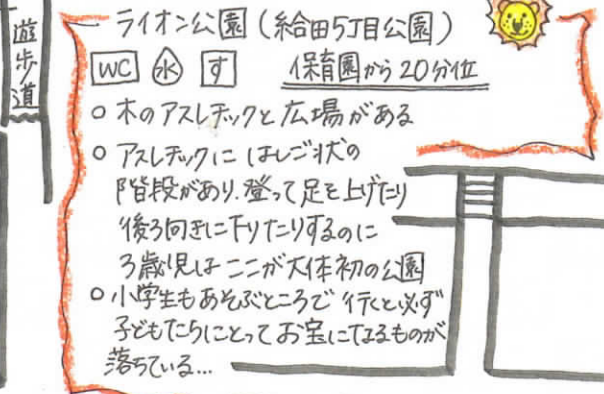 遊歩道
ライオン公園(給田5丁目公園)
WC 水 す 保育園から20分位
○ 木のアスレチックと広場がある
○ アスレチックに はしご状の
階段があり、登って足を上げたり
後ろ向きに下りたりするのに
3歳児はここが大体初の公園
○ 小学生もあそぶところで 行くと必ず
子どもたちにとってお宝になるものが
落ちている...